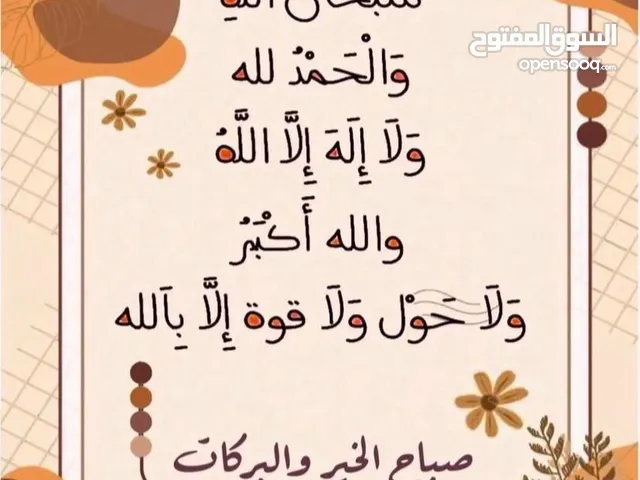 سبحان الله
السوق المفتوح
opensooq.com
وَالْحَمْدُ لله
وَلَا إِلَهَ إِلَّا اللَّهُ
والله أَكْبَرُ
وَلَا حَوْل وَلَا قوة إِلَّا بِاَلله
صباح الخير والبركات